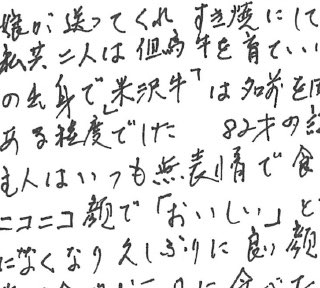 娘が送ってくれ すき焼にして
私共二人は但馬牛を育てい
の出身で「米沢牛」は名前を
ある程度でした 82才の
主人はいつも無表情で食
ニコニコ顔で「おいしい」と
になくなり久しぶりに良い顔